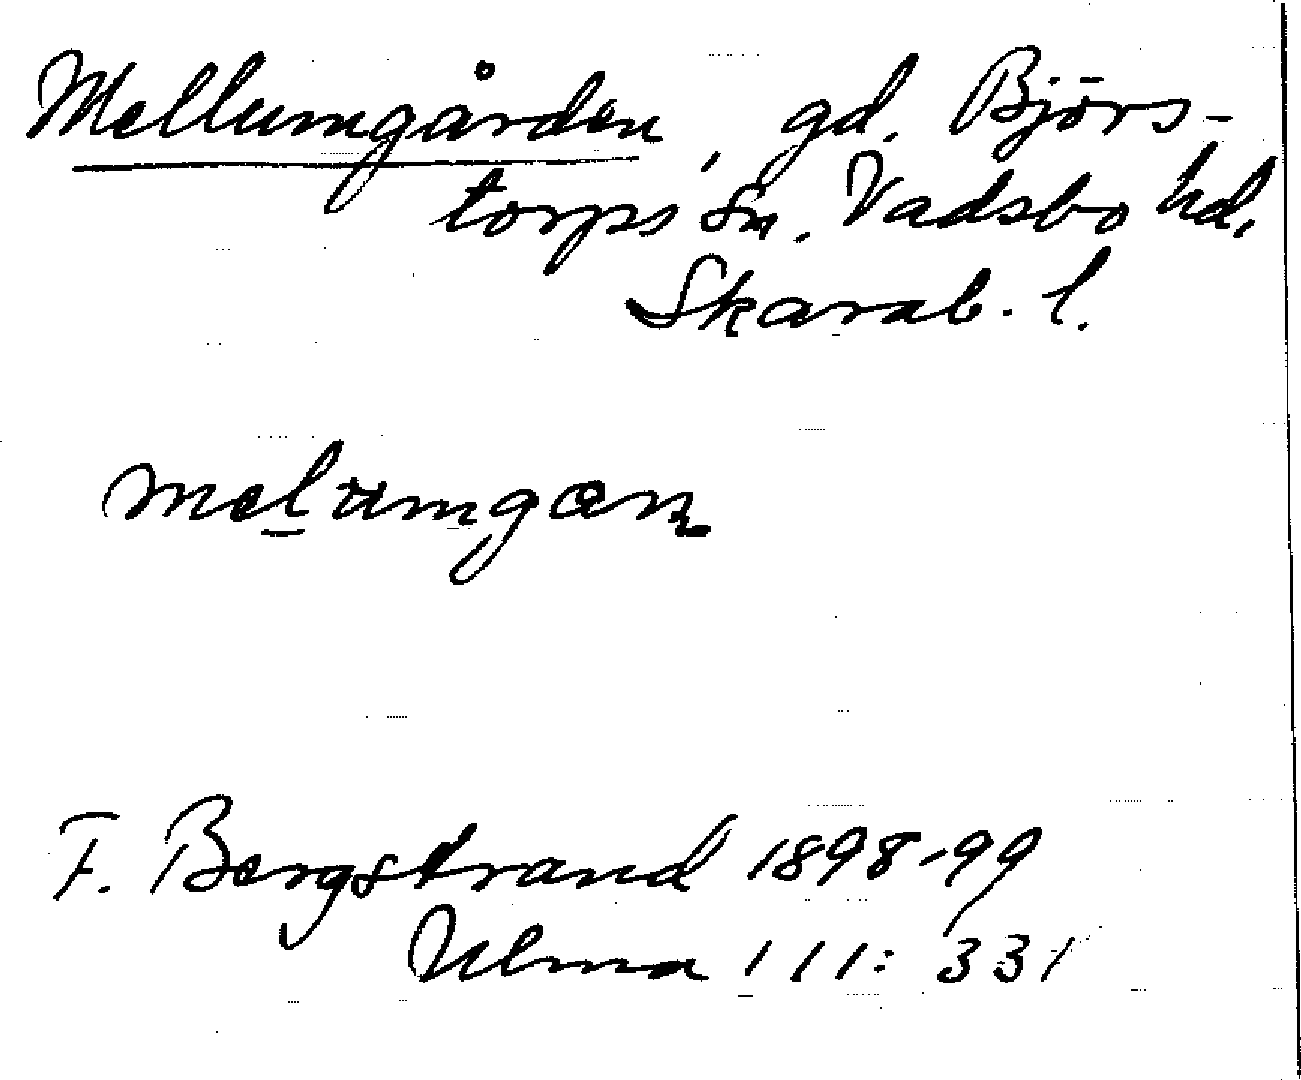 Mellumgården, gd. Björs-
torps sn. Vadsbo hd.
Skarab. l.
F. Bergstrand 1898-99
Ulma 111: 331